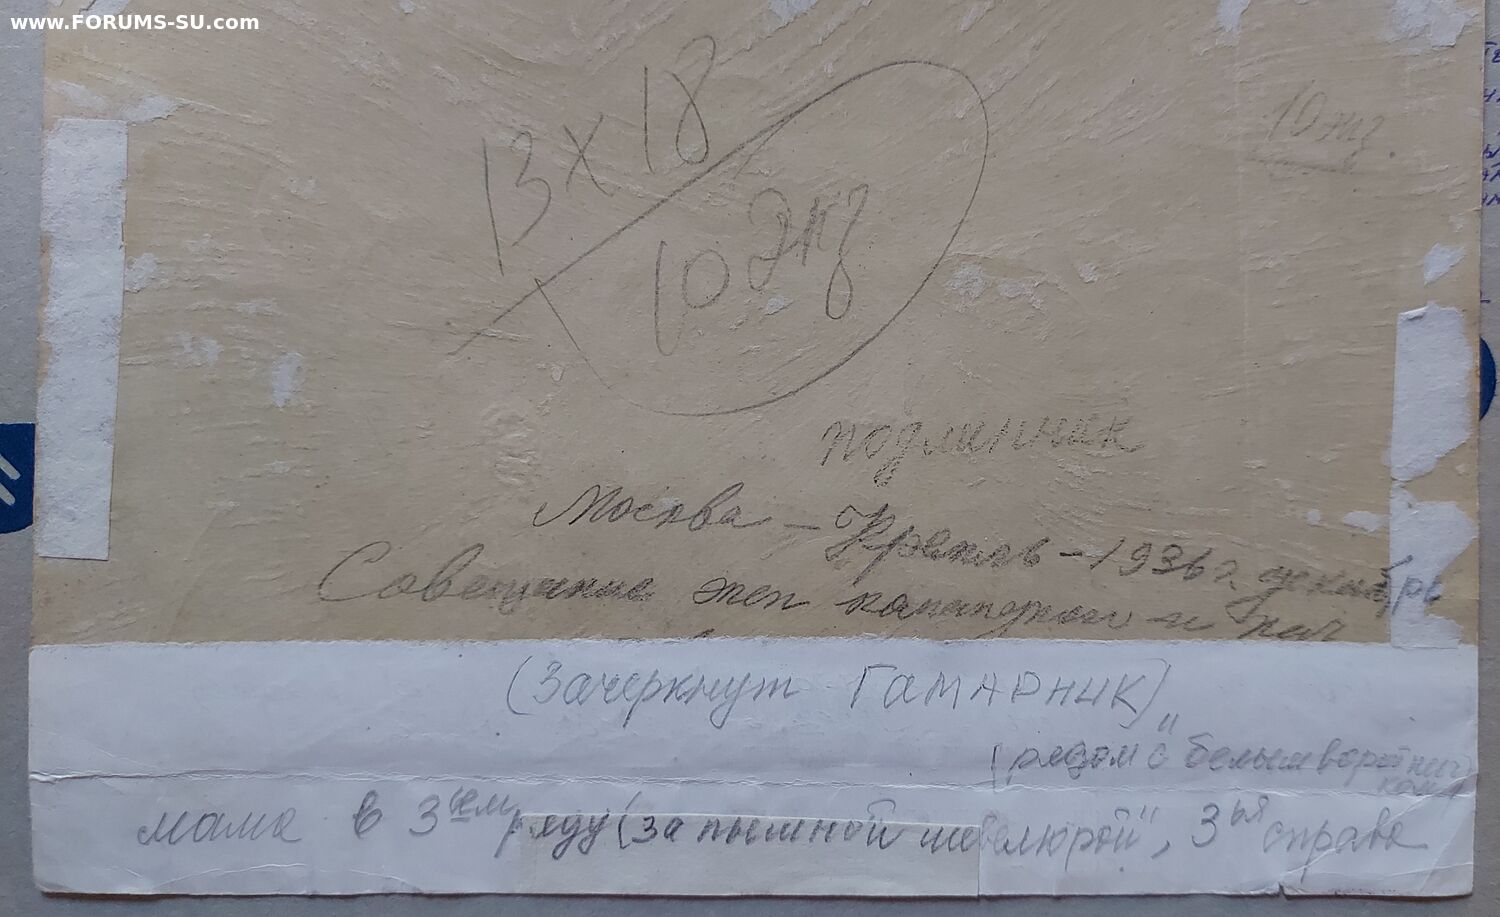 www.FORUMS-SU.com
13 х 18
10 экз
10 экз.
подлинник
Москва – Кремль – 1936 г. декабрь
Совещание жен командиров и нач
(Зачеркнут ГАМАРНИК)
(рядом с "белым воротнич
ком"
мама в 3ьем ряду (за пышной шевелюрой", 3ья справа